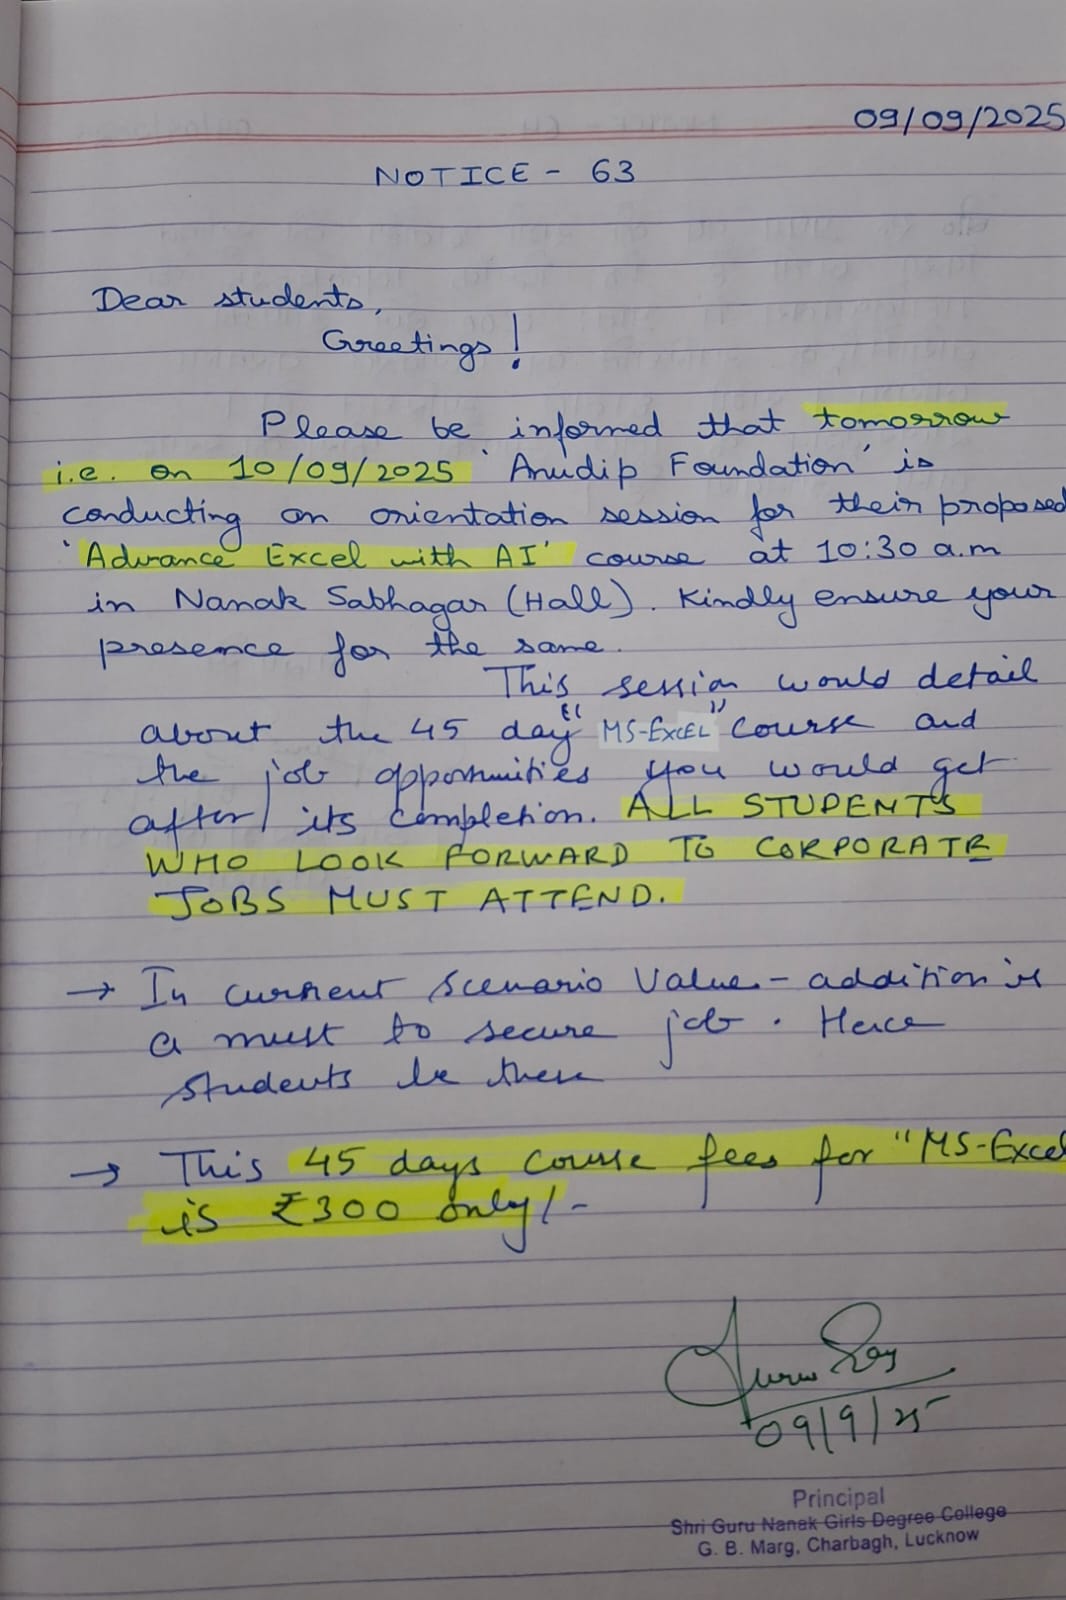 09/09/2025
NOTICE - 63
Dear students,
Greetings!
Please be informed that tomorrow
i.e. on 10/09/2025 'Anudip Foundation' is
conducting an orientation session for their proposed
'Advance Excel with AI' course at 10:30 a.m
in Nanak Sabhagar (Hall). Kindly ensure your
presence for the same.
This session would detail
about the 45 day "MS-EXCEL" course and
the job opportunities you would get
after its completion. ALL STUDENTS
WHO LOOK FORWARD TO CORPORATE
JOBS MUST ATTEND.
→ In current scenario value-addition is
a must to secure job. Hence
students be there
→ This 45 days course fees for "MS-Excel
is ₹300 only/-
09/9/25
Principal
Shri Guru Nanak Girls Degree College
G. B. Marg, Charbagh, Lucknow